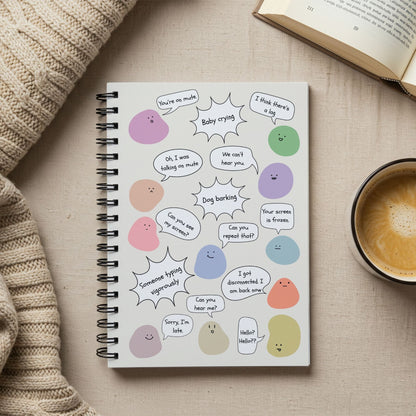 You're on mute
Baby crying
I think there's
a lag
Oh, I was
talking on mute
We can't
hear you
Dog barking
Can you see
my screen?
Can you
repeat that?
Your screen
is frozen.
Someone typing
vigorously
I got
disconnected. I
am back now
Can you
hear me?
Sorry, I'm
late.
Hello?
Hello??
III